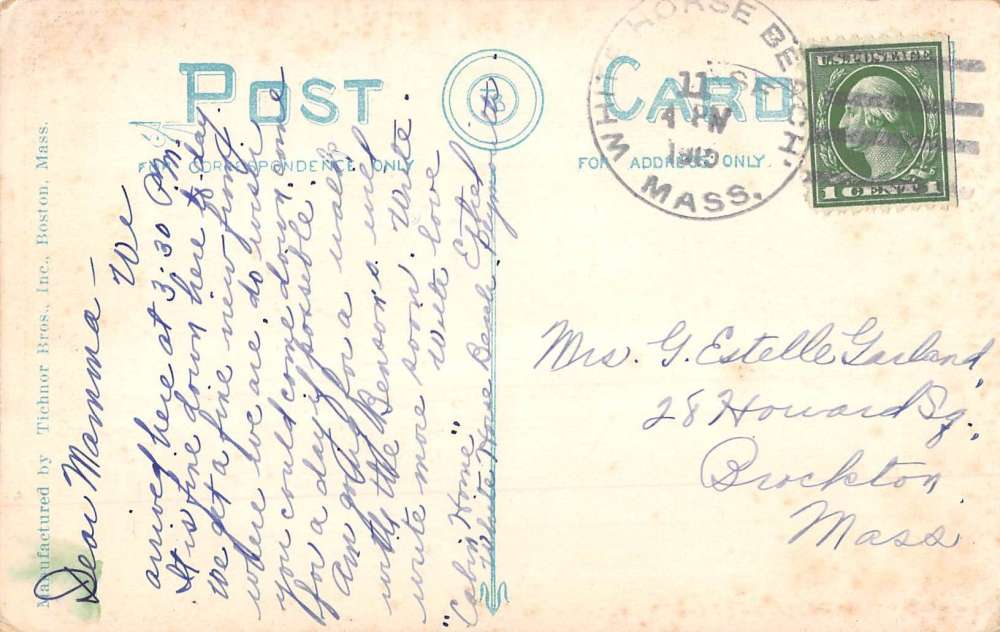 Manufactured by Tichnor Bros., Inc., Boston, Mass.
POST CARD
FOR CORRESPONDENCE ONLY
FOR ADDRESS ONLY.
TB
WHITE HORSE BEACH.
MASS.
11
SE
4 PM
U.S. POSTAGE
1 CENT 1
Dear Mamma —
We
arrived here at 3:30 P.M.
It is fine down here to-day.
We get a fine view from
where we are. do wish
you could come down some
for a day if posseble.
Am going for a walk
with the Benson's. will
write more soon. Write
with love
Ethel
"Cabin Home"
White Horse Beach
Plymouth
Mrs. G. Estelle Garland,
28 Howard Sq.,
Brockton,
Mass